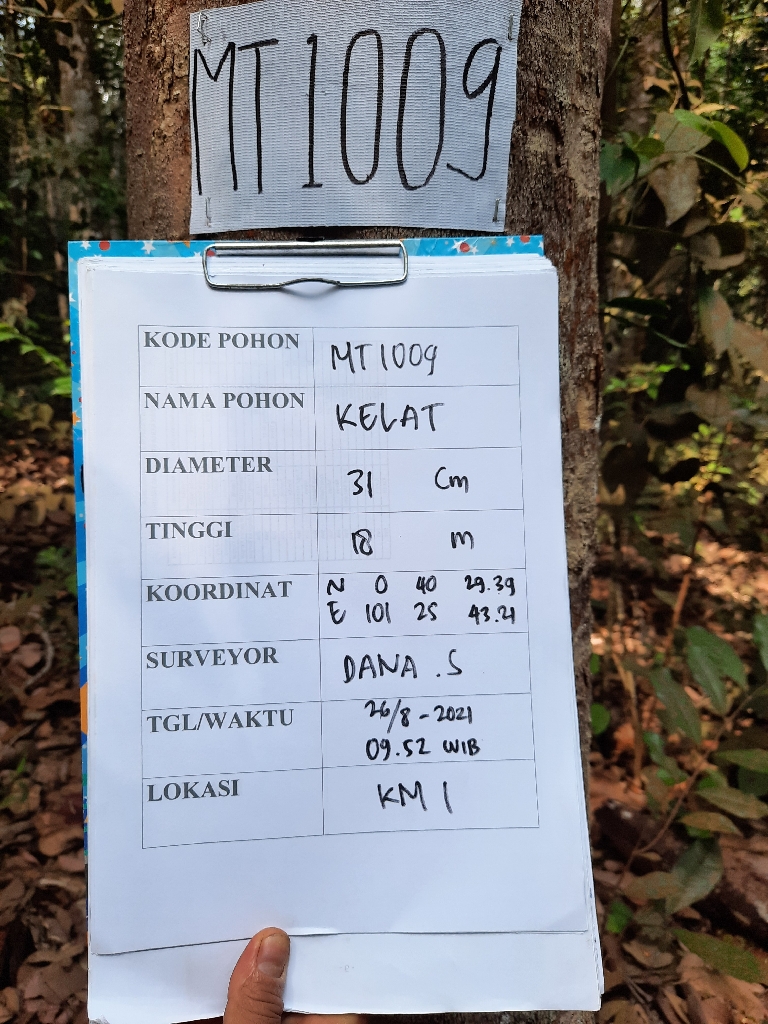 MT1009
KODE POHON MT1009
NAMA POHON KELAT
DIAMETER 31 Cm
TINGGI 18 m
KOORDINAT N 0 40 29.39
E 101 25 43.21
SURVEYOR DANA .S
TGL/WAKTU 26/8-2021
09.52 WIB
LOKASI KM 1